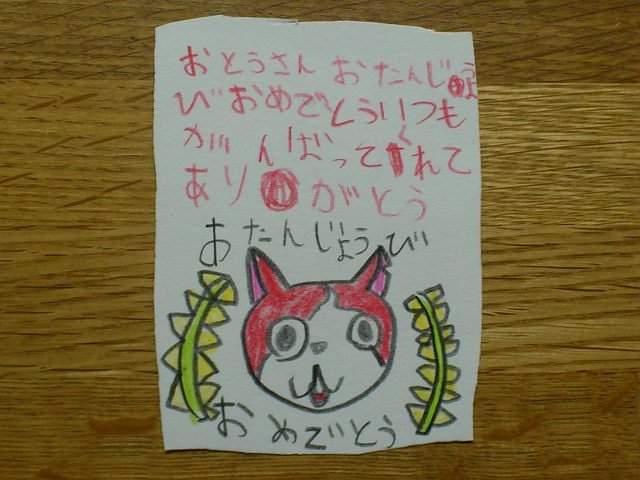 おとうさん おたんじ
びおめでとういつも
がんばってくれて
ありがとう
おたんじょうび
おめでとう